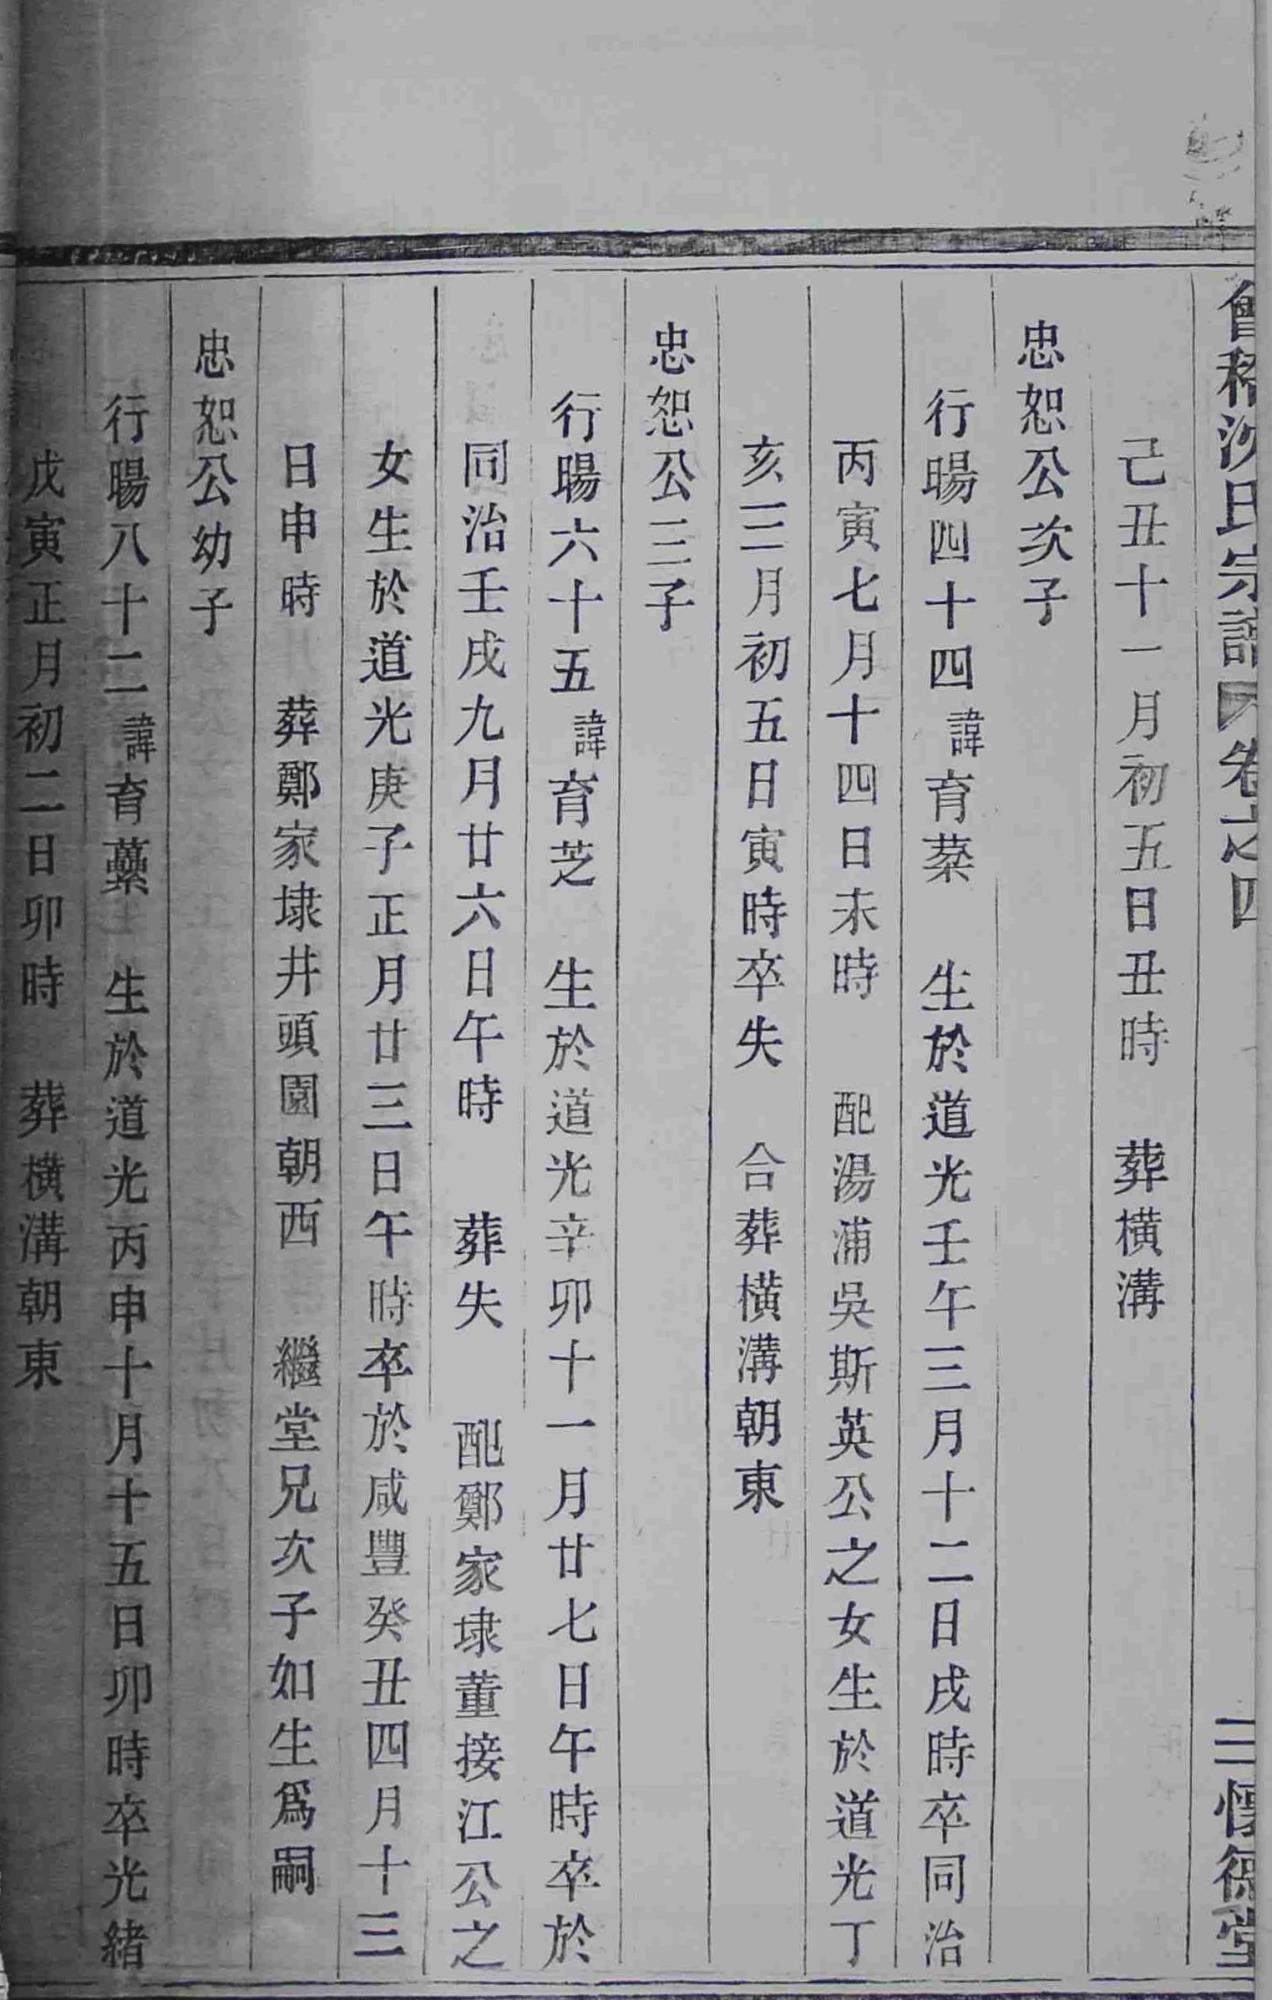 會稽沈氏宗譜 卷之四 三 懷德堂
己丑十一月初五日丑時 葬橫溝
忠恕公次子
行暘四十四諱育蔡 生於道光壬午三月十二日戌時卒同治
丙寅七月十四日未時 配湯浦吳斯英公之女生於道光丁
亥三月初五日寅時卒失 合葬橫溝朝東
忠恕公三子
行暘六十五諱育芝 生於道光辛卯十一月廿七日午時卒於
同治壬戌九月廿六日午時 葬失 配鄭家埭董接江公之
女生於道光庚子正月廿三日午時卒於咸豐癸丑四月十三
日申時 葬鄭家埭井頭園朝西 繼堂兄次子如生爲嗣
忠恕公幼子
行暘八十二諱育蘽 生於道光丙申十月十五日卯時卒光緒
戊寅正月初二日卯時 葬橫溝朝東